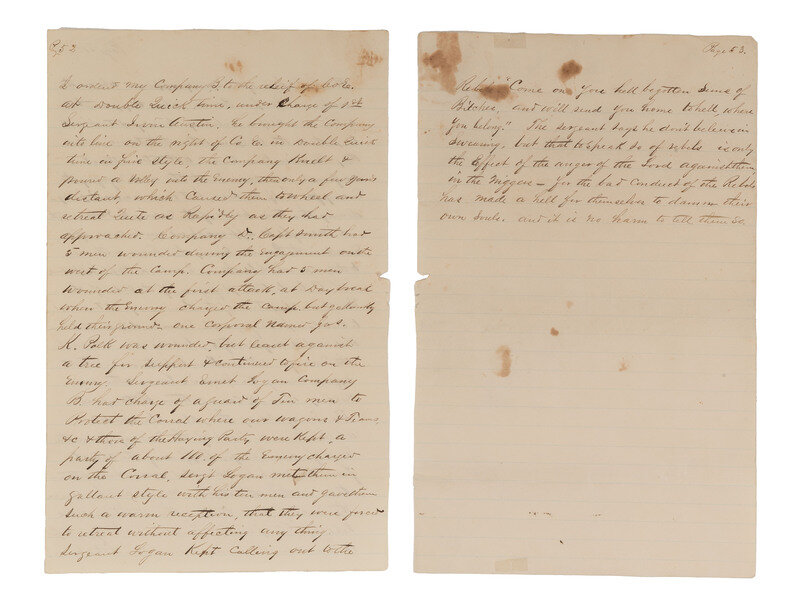 P, 52
I ordered my Company B. to the relief of Co E.
at Double Quick time, under Charge of 1st
Sergeant Irvin Austin, he brought the Company
into line on the right of Co E. in Double Quick
time in fine style, the Company Knelt &
poured a Volley into the Enemy, then only a few
distant, which Caused them to wheel and
retreat Quite as Rapidly as they had
approached. Company Capt Smith had
5 men wounded during the Engagement on the
west of the Camp. Company had 5 men
wounded at the first attack, at Day break
when the Enemy charged the Camp, but gallantly
held their ground. one Corporal named Jas.
K. Polk was wounded but leant against
a tree for support & continued to fire on the
Enemy. Sergeant Logan Company
B. had charge of a guard of Ten men to
Protect the Corral where our wagons & Teams
&c & those of the Haying Party, were Kept, a
party of about 100. of the Enemy charged
on the Corral, Sergt Logan met them in
gallant style with his ten men and gave them
such a warm reception, that they were forced
to retreat without affecting any thing.
Sergeant Logan Kept Calling out to the
Page 53.
Rebels "Come on You hell begotten Sons of
Bitches, and will send you home to hell, where
You belong." The sergeant says he don't believe in
swearing, but that to speak so of rebels is only
the Effect of the anger of the Lord against them
in the Niggers - for the bad Conduct of the Rebels
has made a hell for themselves to damn their
own Souls. and it is no harm to tell them so.